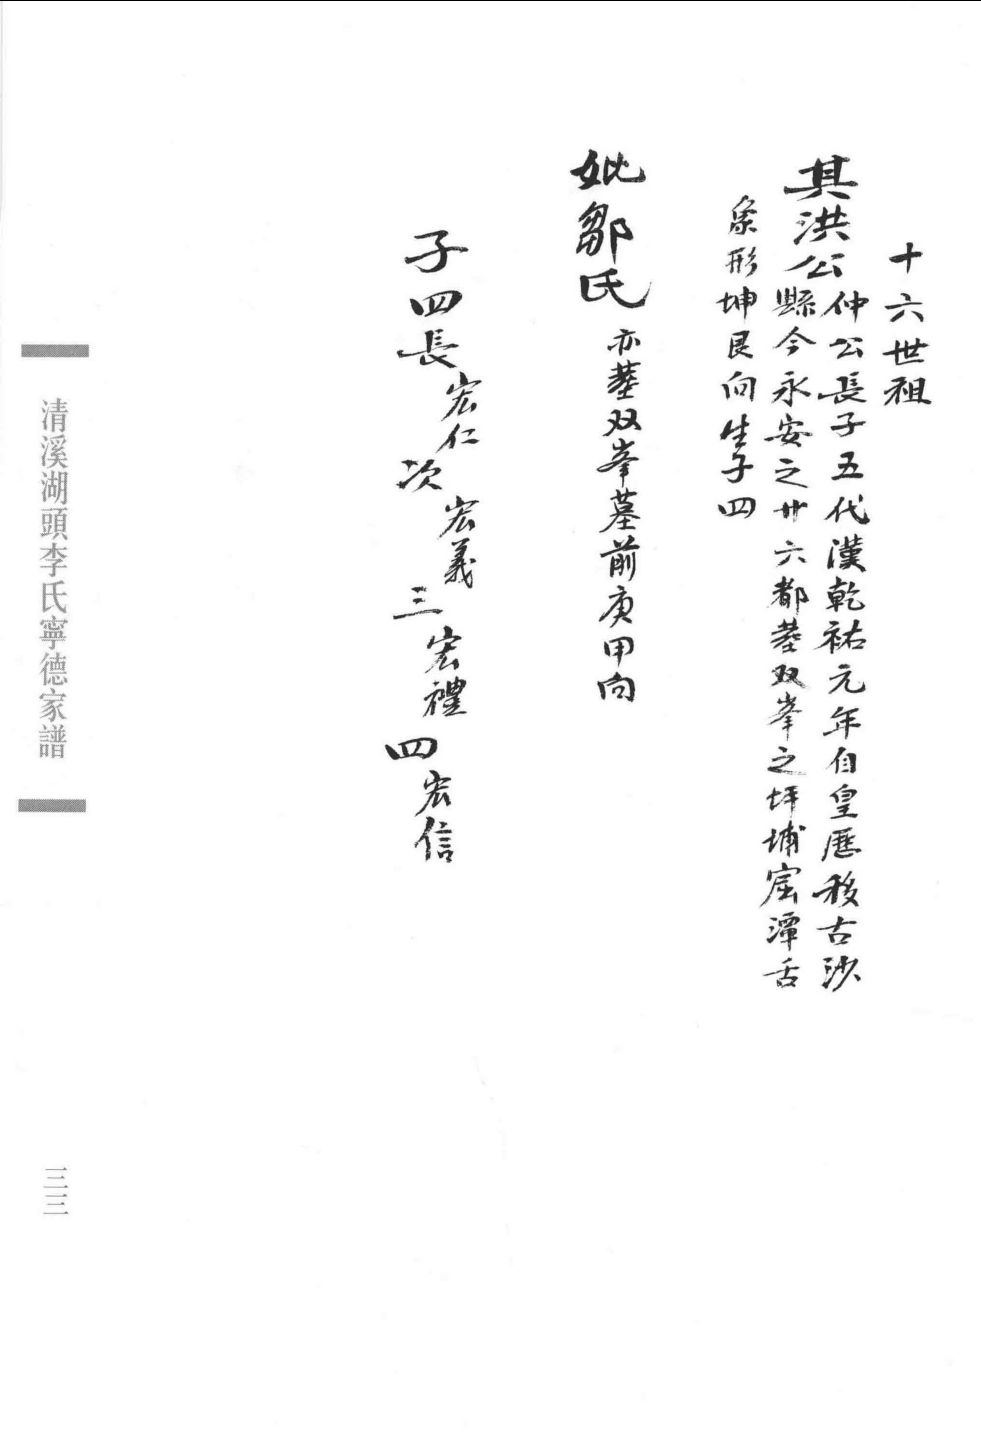 十六世祖
其洪公
仲公長子五代漢乾祐元年自皇歷移古沙
縣今永安之廿六都葬双峯之坪埔窟潭舌
象形坤艮向生子四
妣鄒氏
亦葬双峯墓前庚甲向
子四長宏仁次宏義三宏禮四宏信
清溪湖頭李氏寧德家譜
三三